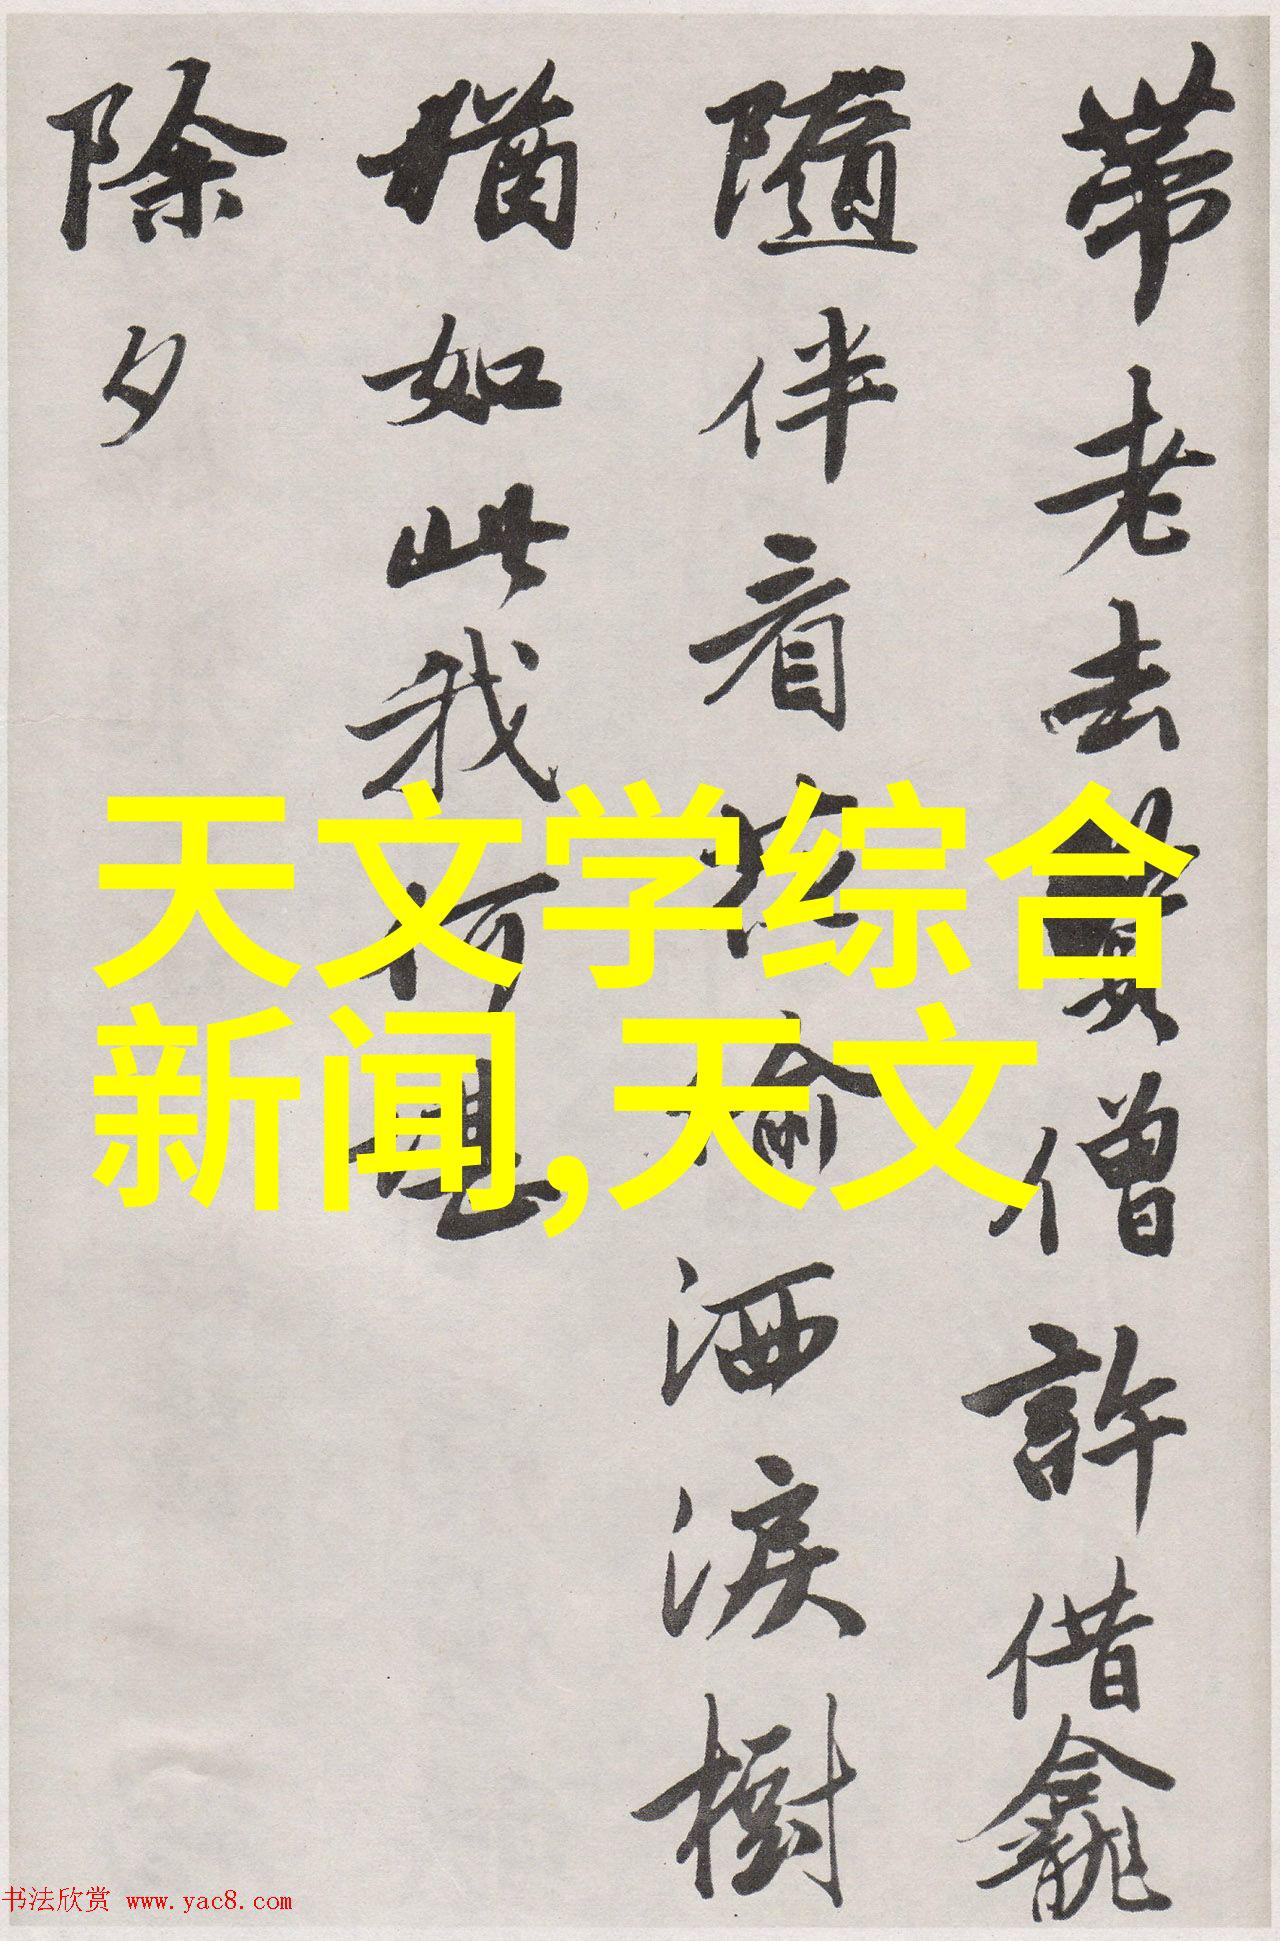 帶老去僧許借龕
隨伴看榆洒淚樹
猶如此我何堪
除夕
天文学综合
新闻,天文
书法欣赏 www.yac8.com